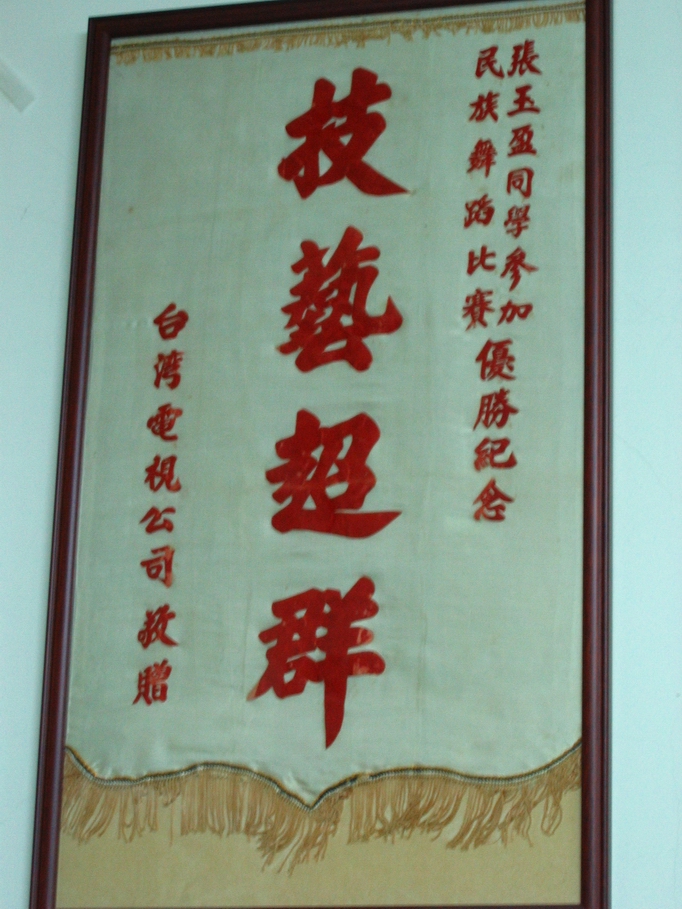 張玉盈同學參加
民族舞蹈比賽優勝紀念
技藝超群
台灣電視公司敬贈